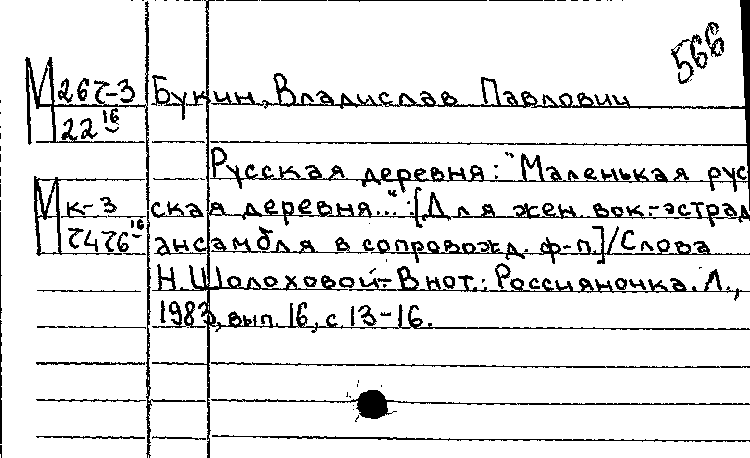 566
М 267-3 Букин, Владислав Павлович
22 16
Русская деревня: "Маленькая рус
М к-3 ская деревня..." : [Для жен. вок.-эстрад
7476 16 ансамбля в сопровожд. ф-п.] / Слова
Н. Шолоховой. - В нот.: Россияночка. Л.,
1983, вып. 16, с. 13-16.